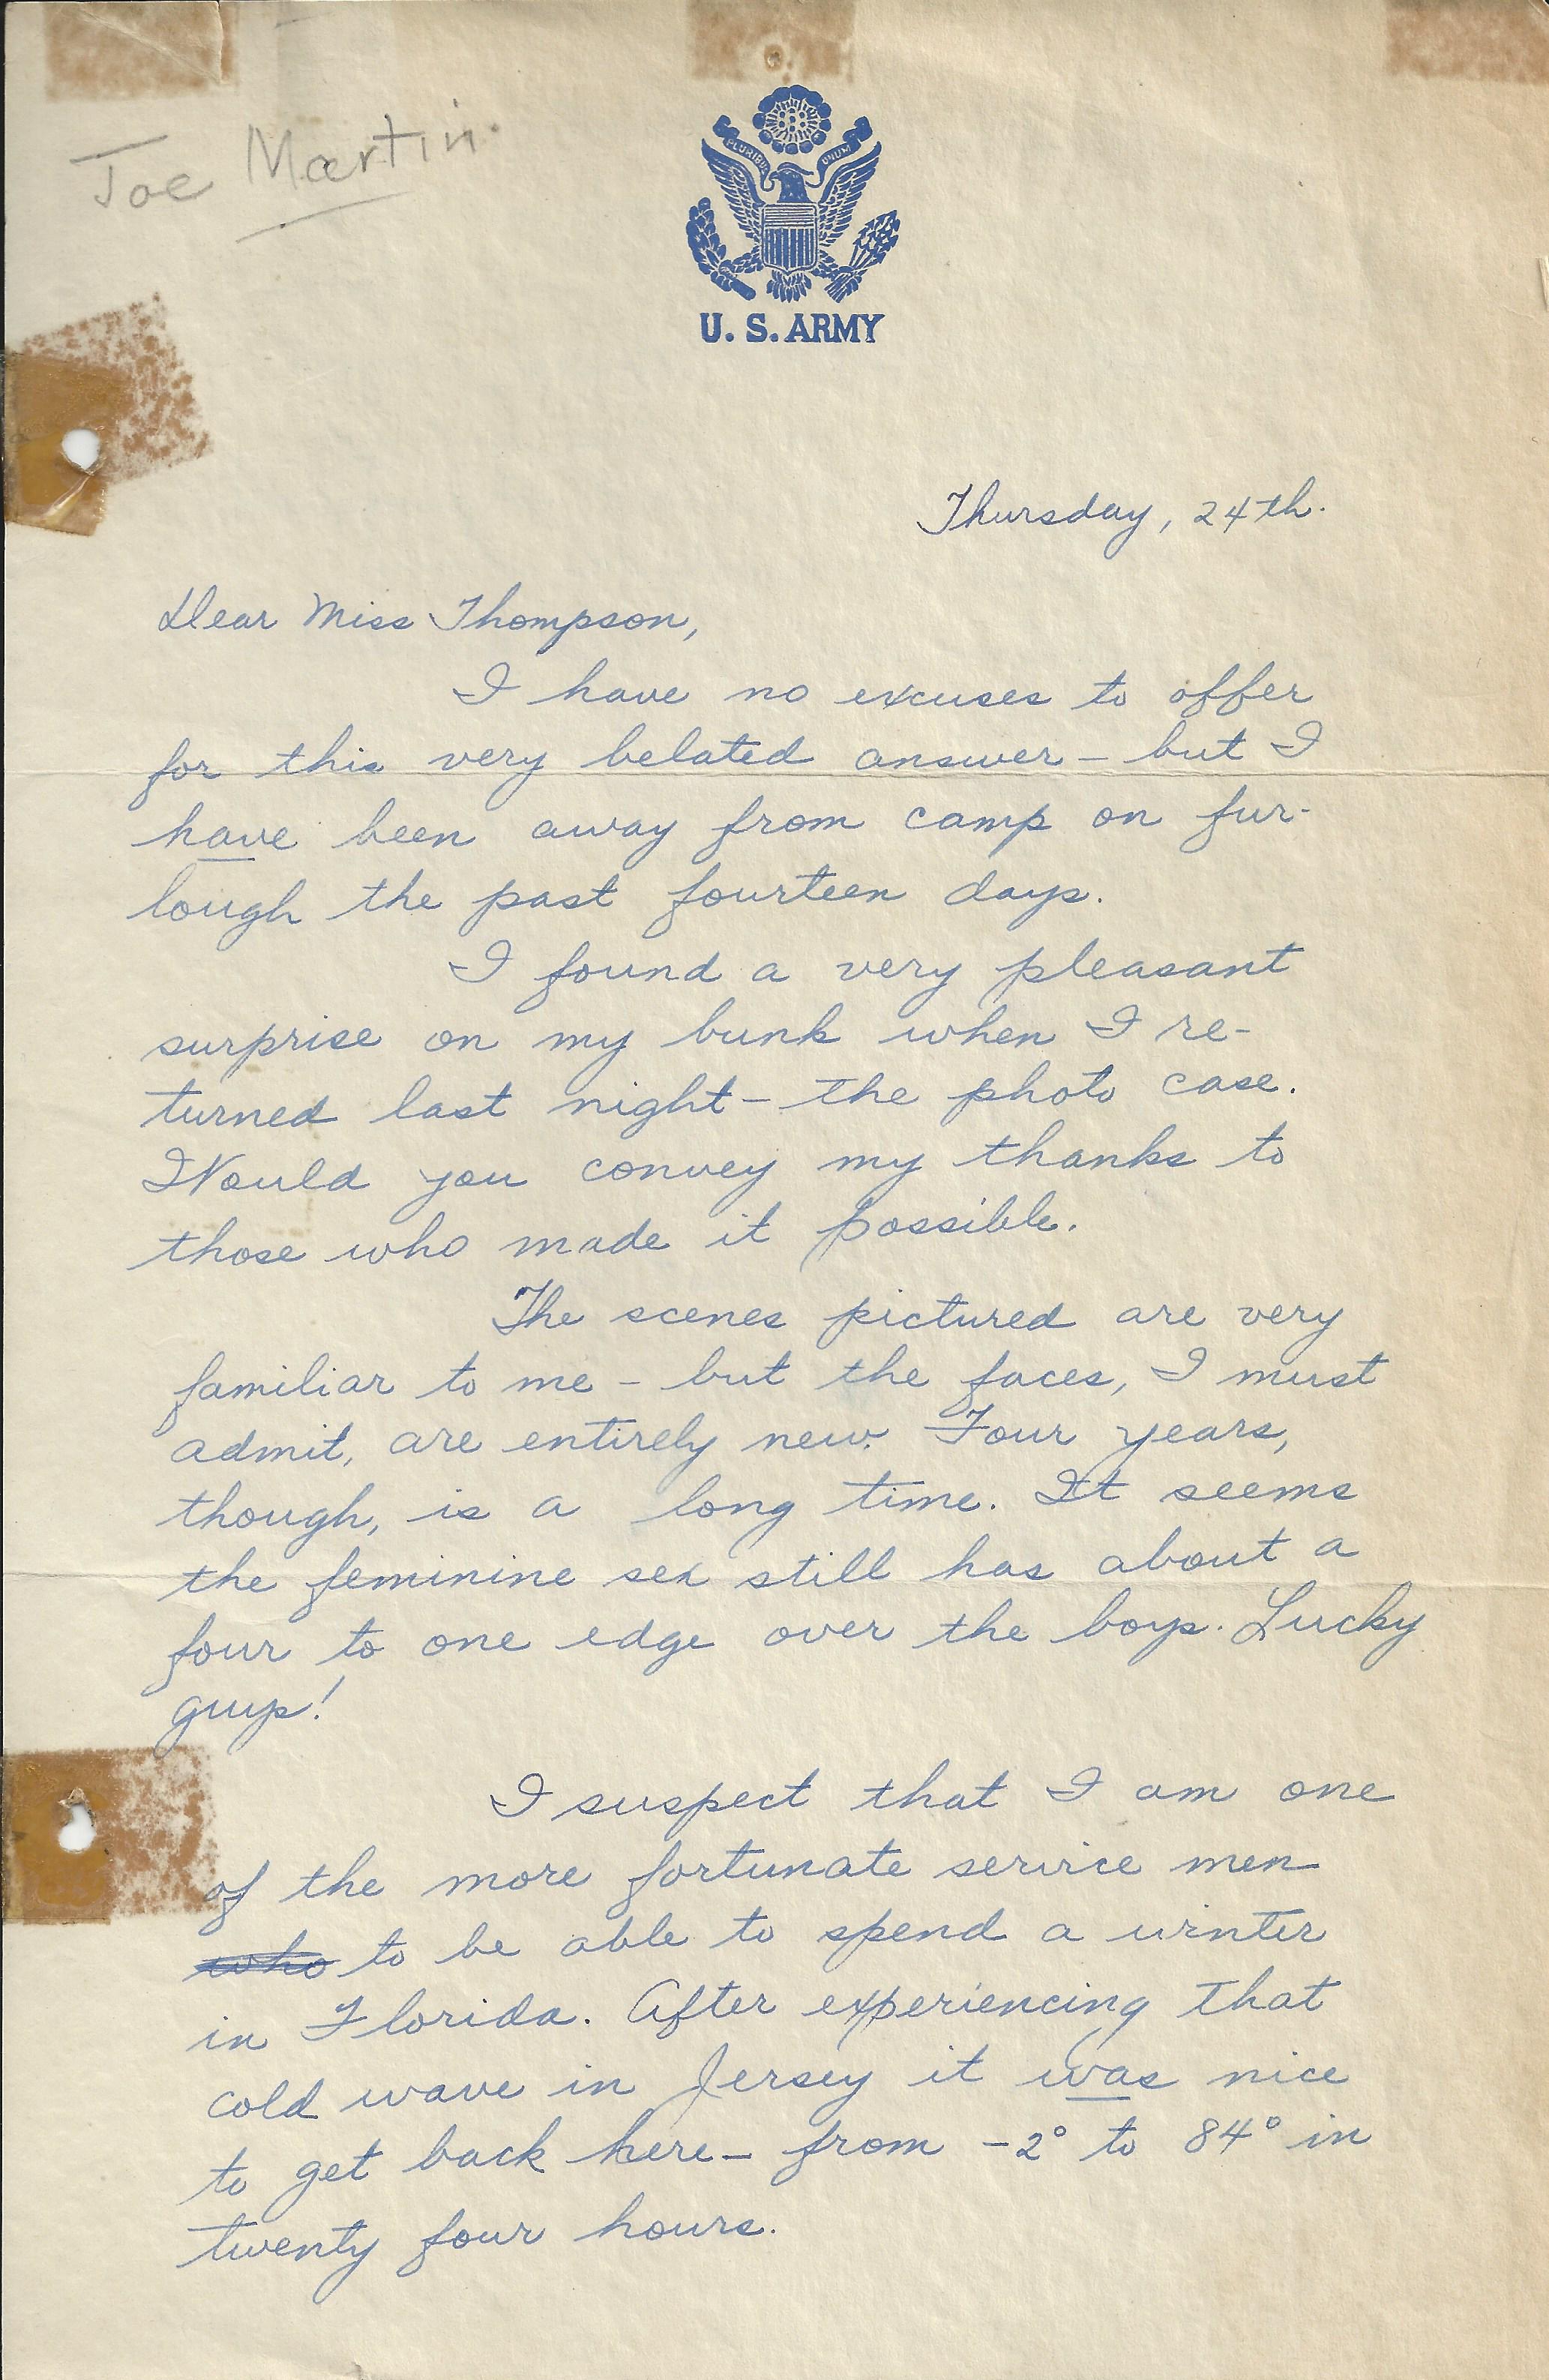 Joe Martin.
PLURIBUS UNUM
U. S. ARMY
Thursday, 24th.
Dear Miss Thompson,
I have no excuses to offer
for this very belated answer – but I
have been away from camp on fur-
lough the past fourteen days.
I found a very pleasant
surprise on my bunk when I re-
turned last night – the photo case.
Would you convey my thanks to
those who made it possible.
The scenes pictured are very
familiar to me – but the faces, I must
admit, are entirely new. Four years,
though, is a long time. It seems
the feminine sex still has about a
four to one edge over the boys. Lucky
guys!
I suspect that I am one
of the more fortunate service men
who to be able to spend a winter
in Florida. After experiencing that
cold wave in Jersey it was nice
to get back here – from -2° to 84° in
twenty four hours.